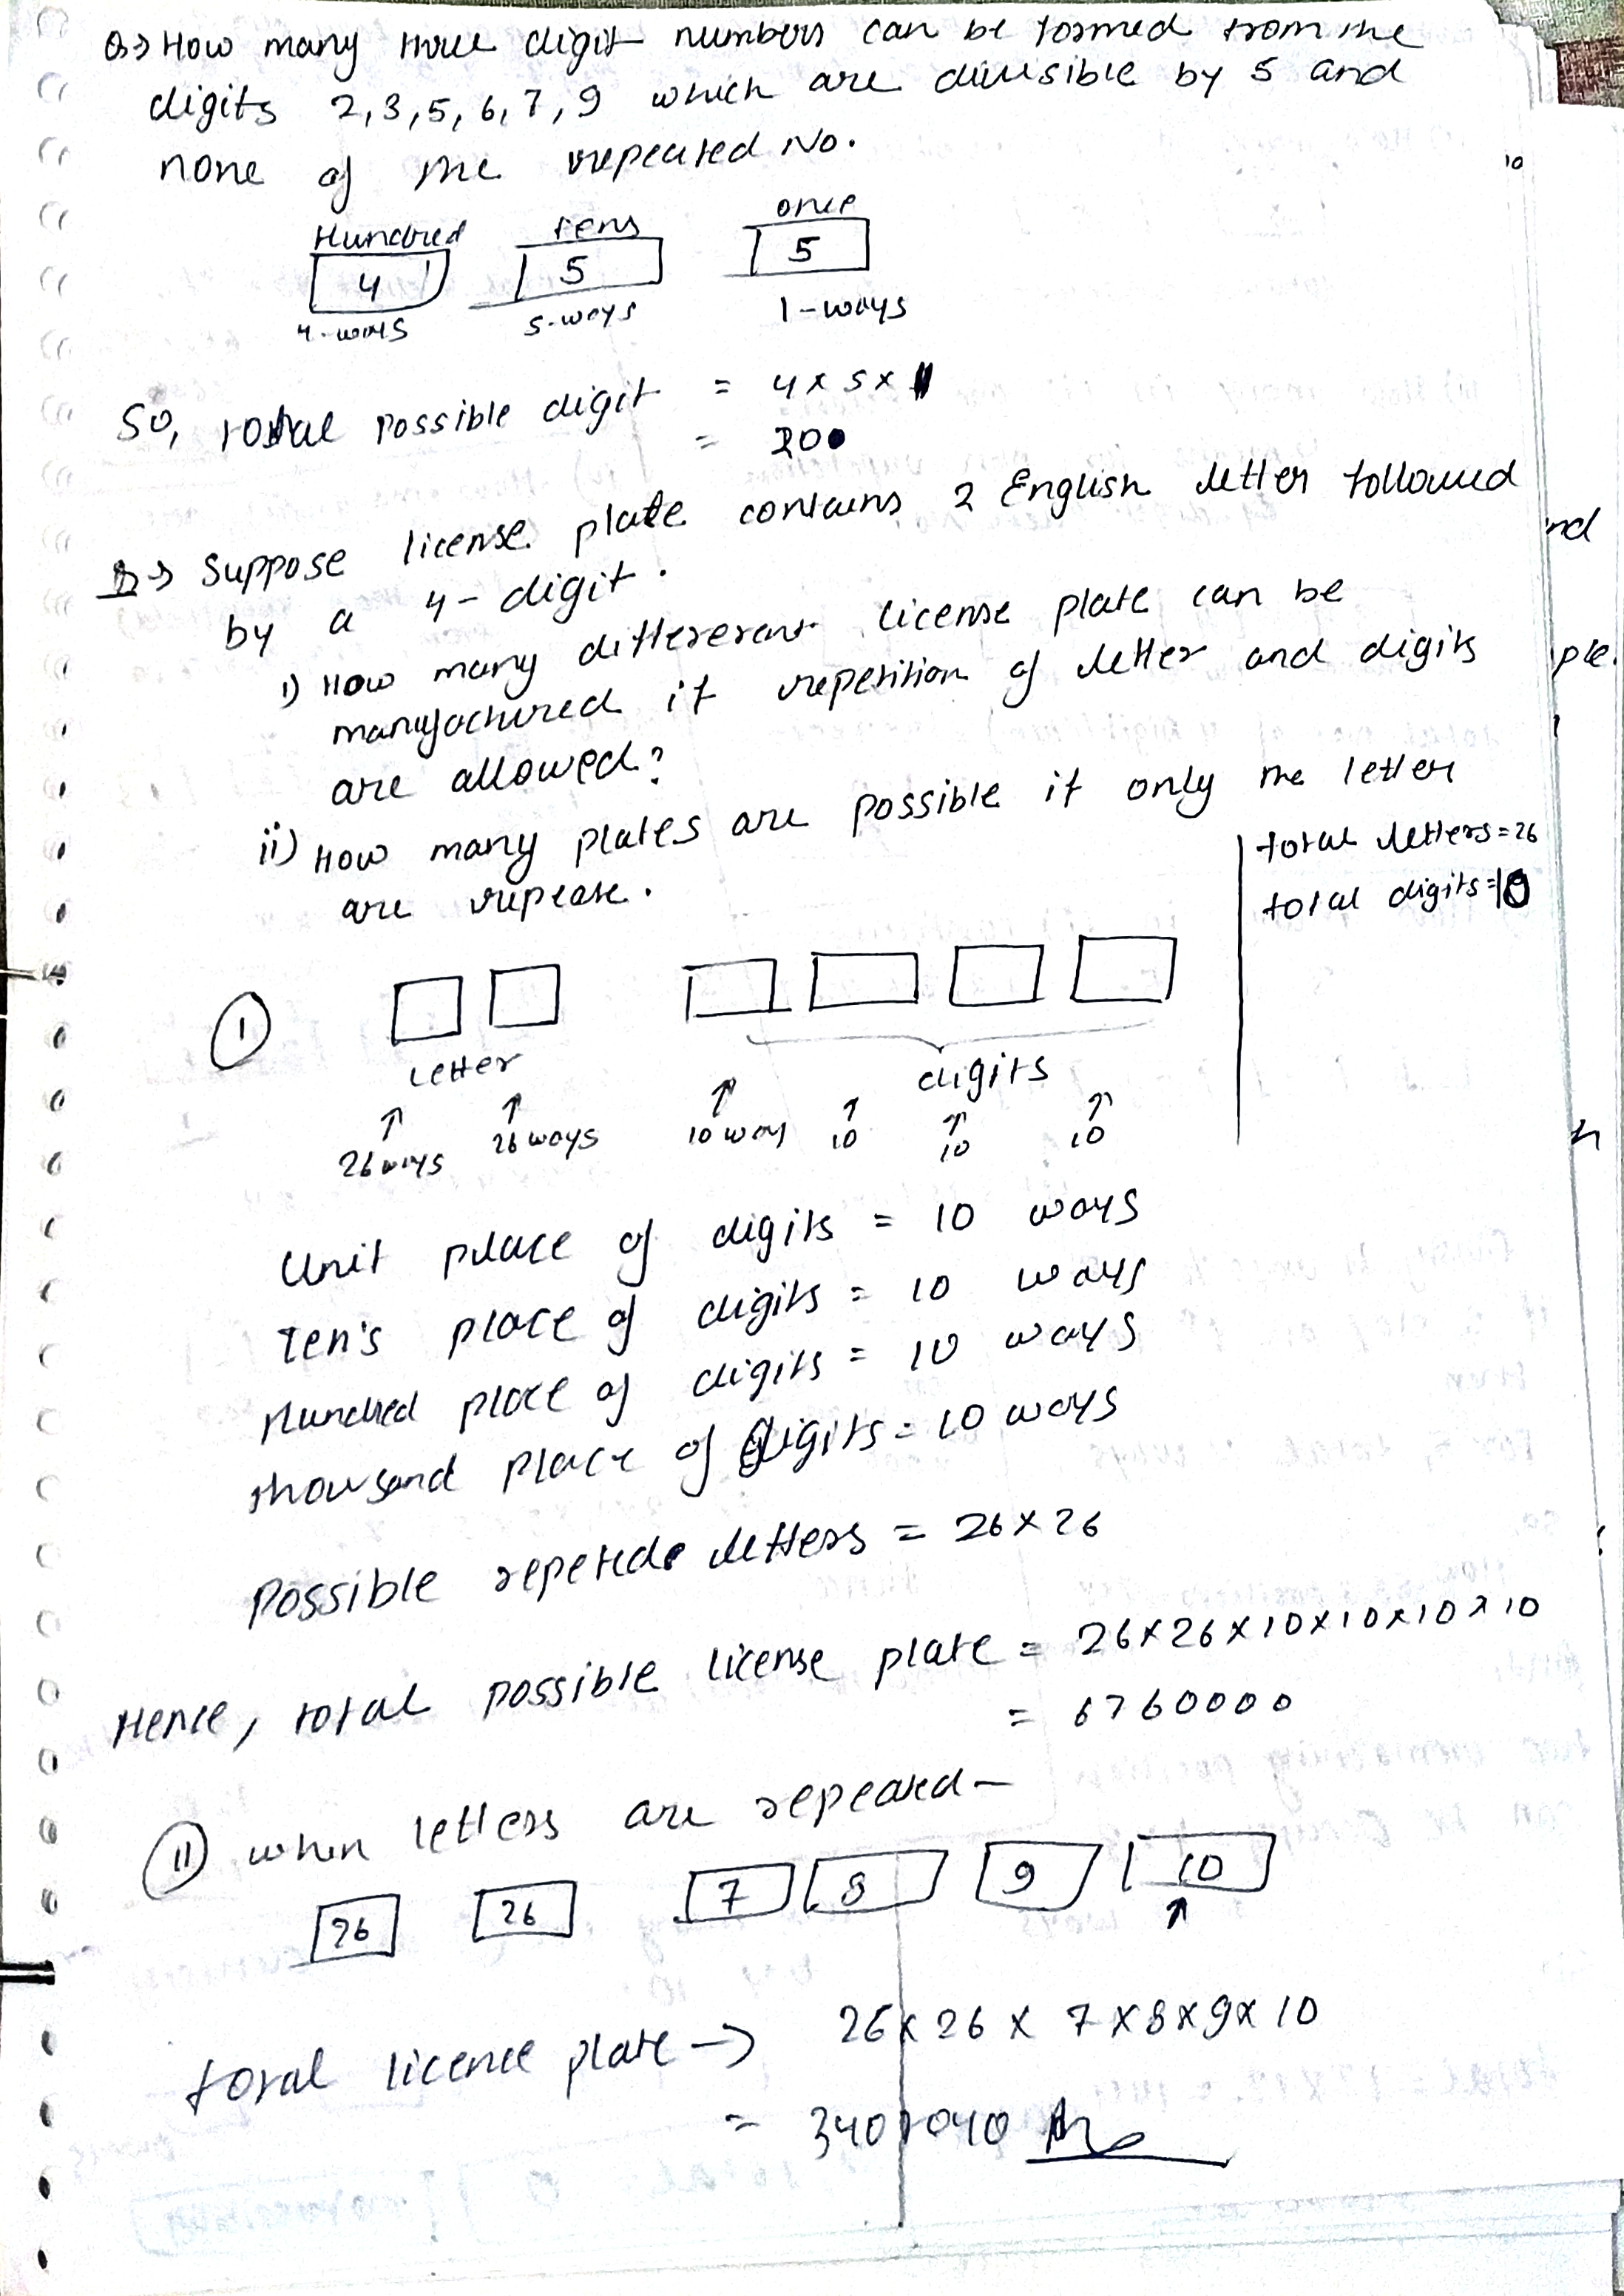 Q→ How many three digit numbers can be formed from the
digits 2,3,5,6,7,9 which are divisible by 5 and
none of the repeated No.
Hundred tens once
4 5 5
4-ways 5-ways 1-ways
So, total possible digit = 4 x 5 x 1
= 20
Q→ Suppose license plate contains 2 English letter followed
by a 4-digit.
i) How many differerent license plate can be
manufactured if repetition of letter and digits
are allowed?
ii) How many plates are possible if only the letter
are repeate.
total letters = 26
total digits = 10
①
Letter digits
26 ways 26 ways 10 way 10 10 10
Unit place of digits = 10 ways
Ten's place of digits = 10 ways
Hundred place of digits = 10 ways
thousand place of digits = 10 ways
Possible repeted letters = 26 x 26
Hence, total possible license plate = 26 x 26 x 10 x 10 x 10 x 10
= 6760000
⑪ when letters are repeated -
26 26 7 8 9 10
total licence plate → 26 x 26 x 7 x 8 x 9 x 10
= 3407040 Ans